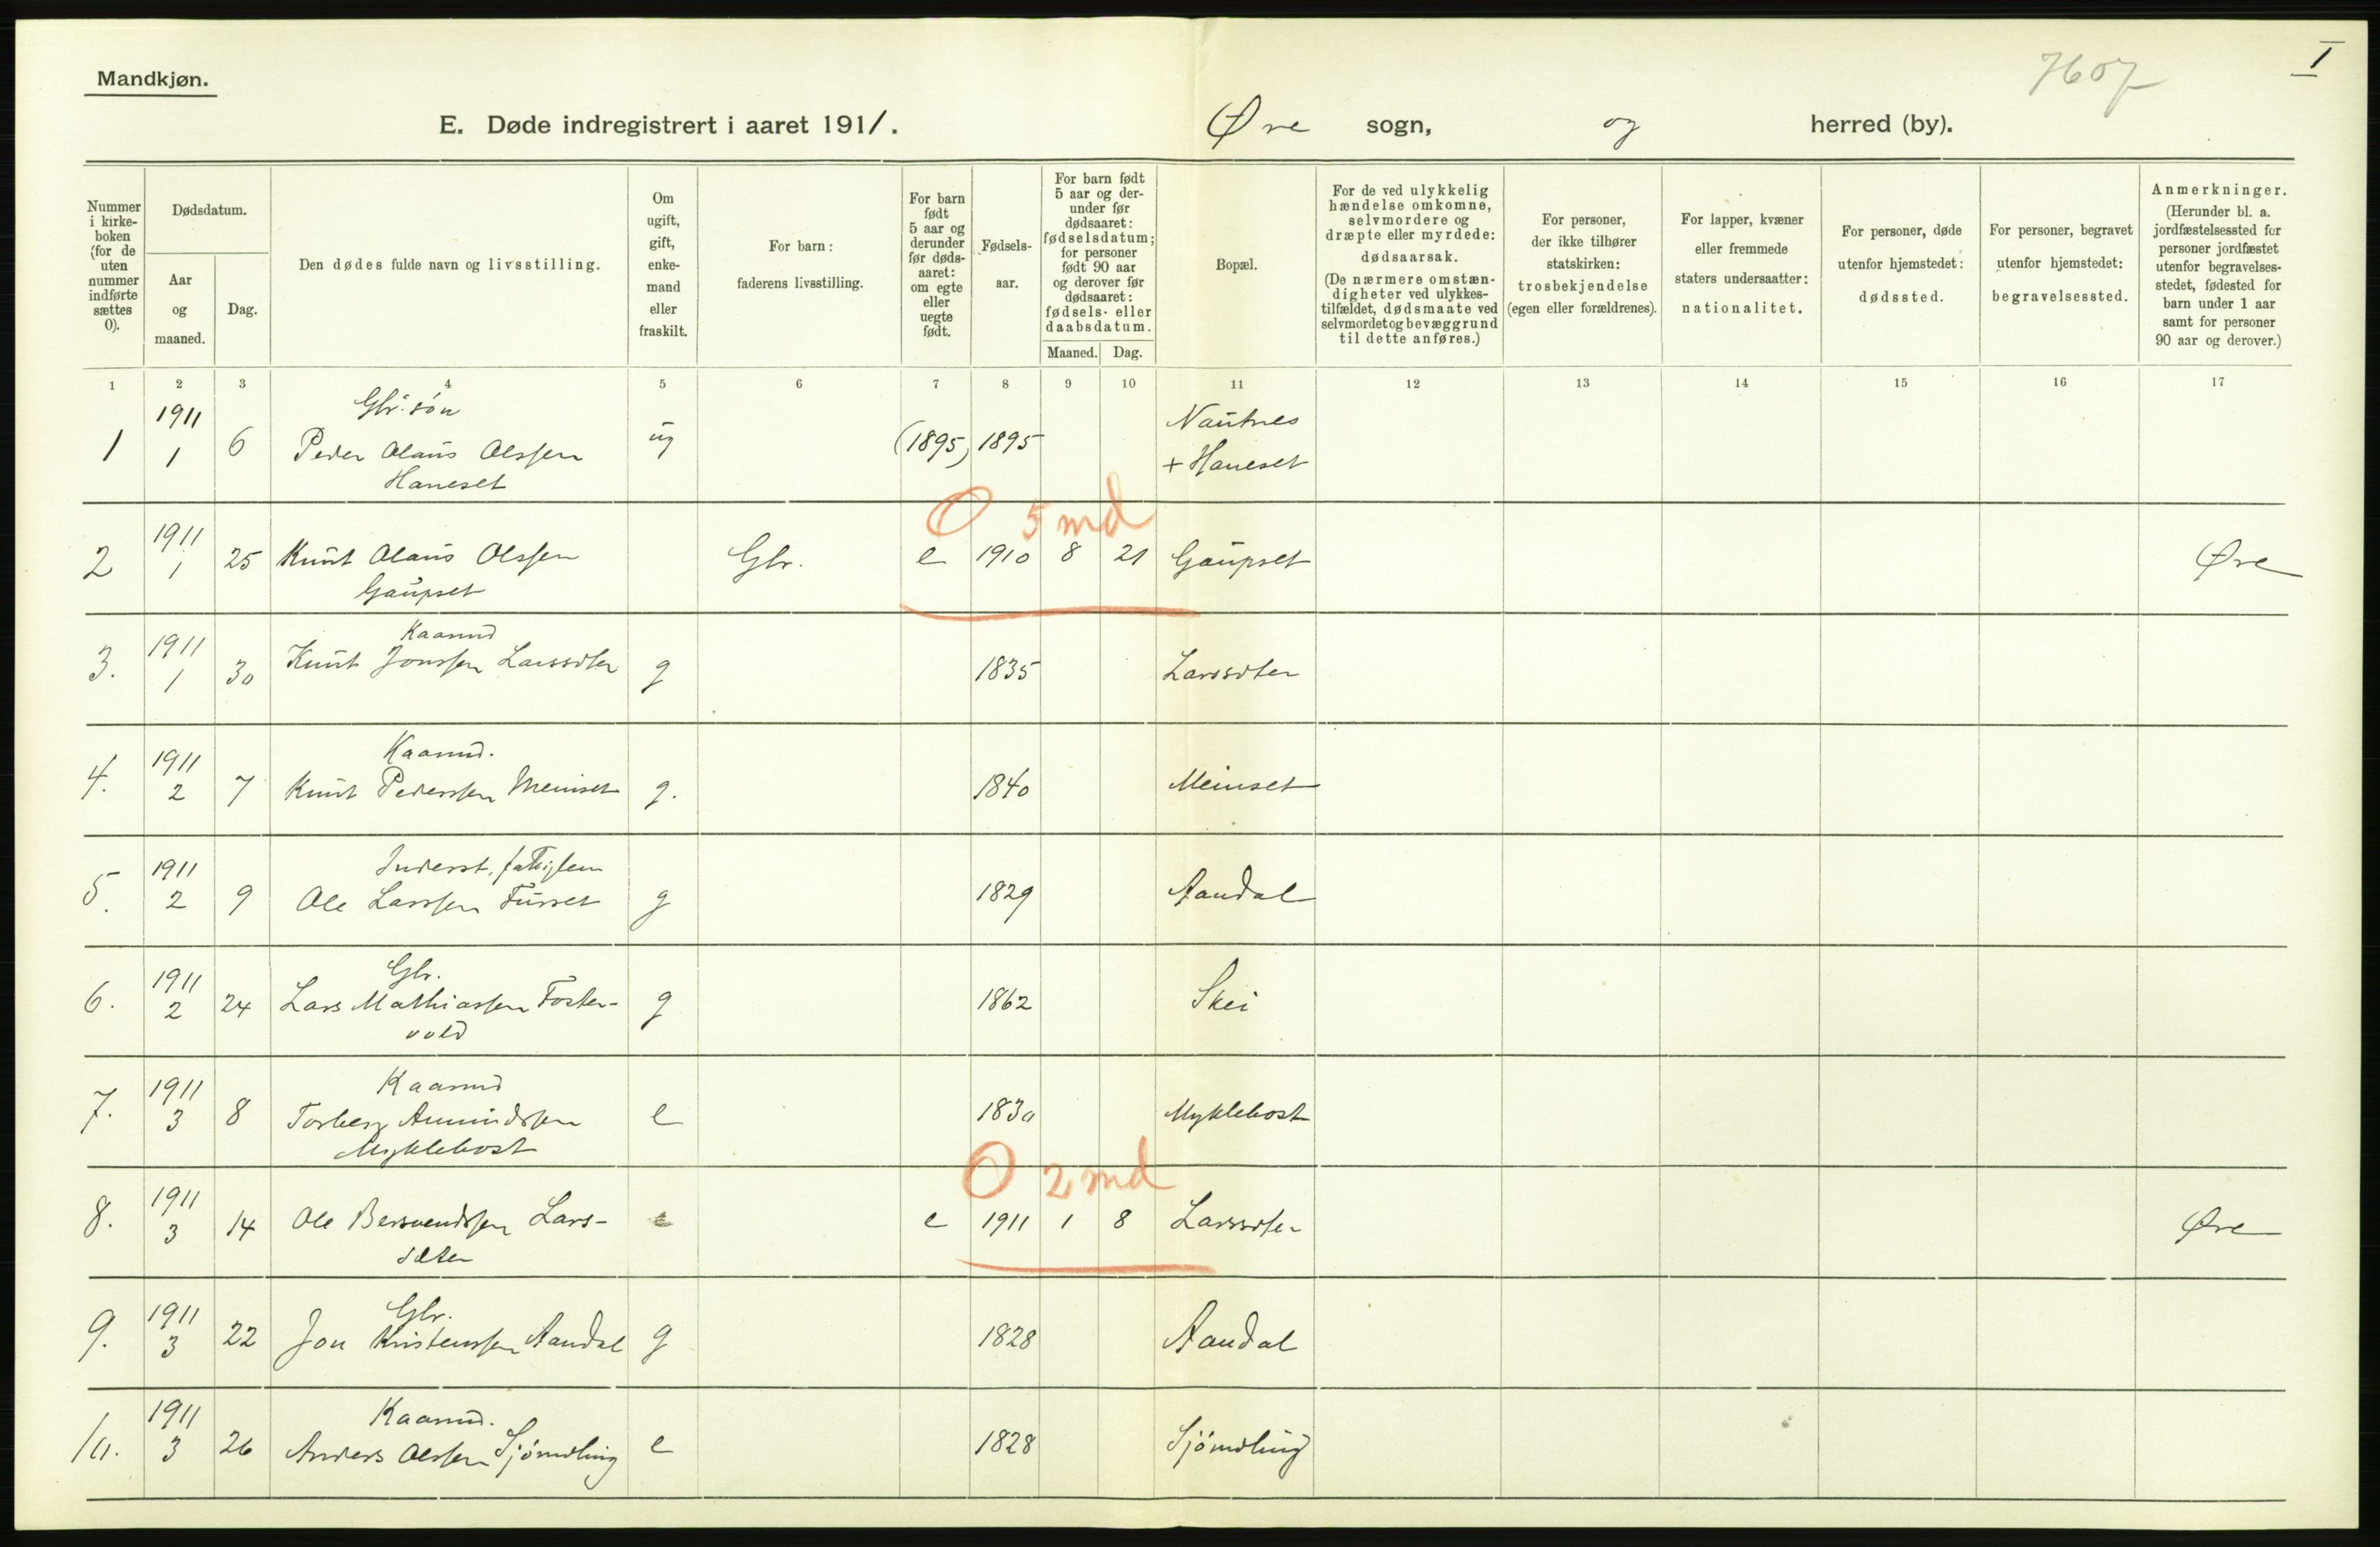 Mandkjøn.
7607
I
E. Døde indregistrert i aaret 1911.
Øre sogn, og herred (by).
Nummer i kirke-boken (for de uten nummer indførte sættes 0).
Dødsdatum.
Aar og maaned.
Dag.
Den dødes fulde navn og livsstilling.
Om ugift, gift, enke-mand eller fraskilt.
For barn: faderens livsstilling.
For barn født 5 aar og derunder før døds-aaret: om egte eller uegte født.
Fødsels-aar.
For barn født 5 aar og der-under før dødsaaret: fødselsdatum; for personer født 90 aar og derover før dødsaaret: fødsels- eller daabsdatum.
Maaned. Dag.
Bopæl.
For de ved ulykkelig hændelse omkomne, selvmordere og dræpte eller myrdede: dødsaarsak. (De nærmere omstæn-digheter ved ulykkes-tilfældet, dødsmaate ved selvmordet og bevæggrund til dette anføres.)
For personer, der ikke tilhører statskirken: trosbekjendelse (egen eller forældrenes).
For lapper, kvæner eller fremmede staters undersaatter: nationalitet.
For personer, døde utenfor hjemstedet: dødssted.
For personer, begravet utenfor hjemstedet: begravelsessted.
Anmerkninger. (Herunder bl. a. jordfæstelsessted for personer jordfæstet utenfor begravelses-stedet, fødested for barn under 1 aar samt for personer 90 aar og derover.)
1 2 3 4 5 6 7 8 9 10 11 12 13 14 15 16 17
1911 Gbr. søn Nautnes
1 1 6 Peder Olaus Olssen ug (1895) 1895 + Haneset
Haneset
O 5 md
1911
2 1 25 Knut Olaus Olssen Gbr. e 1910 8 21 Gaupset Øre
Gaupset
1911 Kaarmd
3. 1 30 Knut Jonssen Larssæter g 1835 Larssæter
1911 Kaarmd.
4. 2 7 Knut Pederssen Meinset g. 1840 Meinset
1911 Inderst, fattiglem
5. 2 9 Ole Larssen Furset g 1829 Aandal
1911 Gbr.
6. 2 24 Lars Mathiassen Foster- g 1862 Skei
vold
1911 Kaarmd
7. 3 8 Torberg Amundssen e 1830 Myklebost
Myklebost
O 2 md
1911
8. 3 14 Ole Bersvendssen Lars- e e 1911 1 8 Larssæter Øre
sæter
1911 Gbr.
9. 3 22 Jon Kristenssen Aandal g 1828 Aandal
1911 Kaarmd.
10. 3 26 Anders Olssen Sjömdling e 1828 Sjömdling